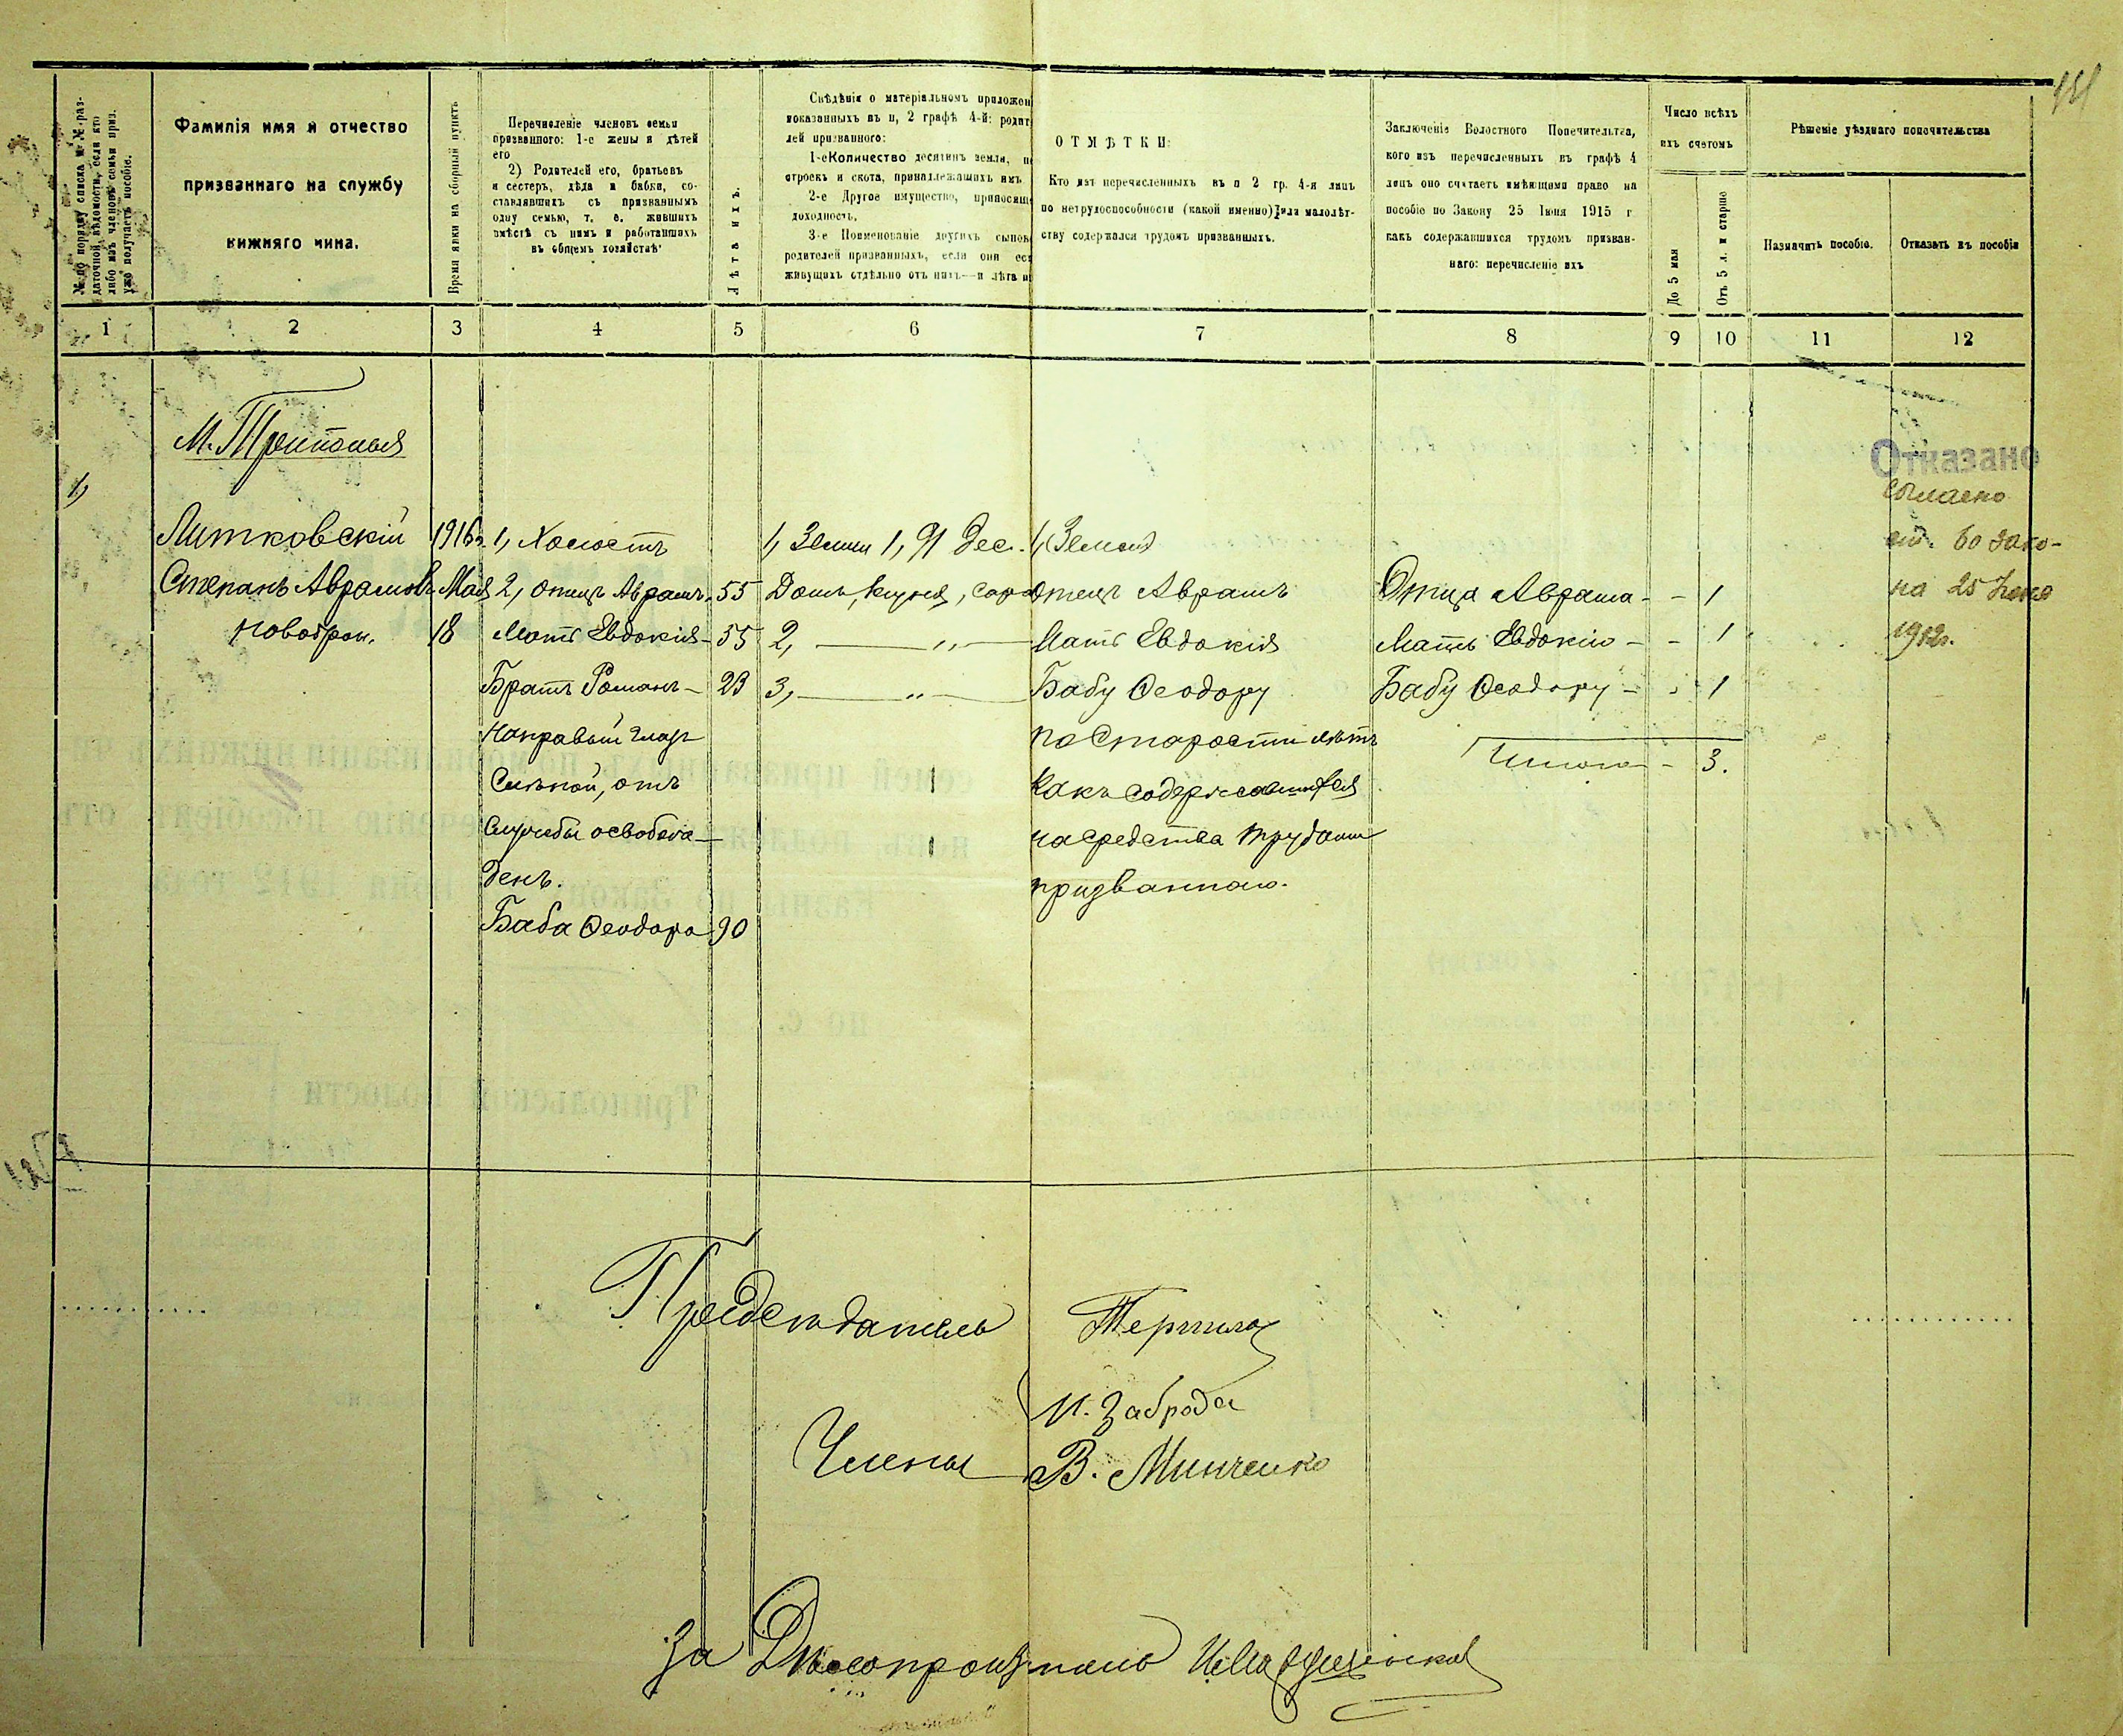 № по порядку списка и №-раз-
даточной вѣдомости, если кто
либо изъ членовъ семьи приз.
уже получаетъ пособіе.
Фамилія имя и отчество
призваннаго на службу
нижняго чина.
Время явки на сборный пунктъ
Перечисленіе членовъ семьи
призваннаго: 1-е жены и дѣтей
его
2) Родителей его, братьевъ
и сестеръ, дѣда и бабки, со-
ставлявшихъ съ призваннымъ
одну семью, т. е. жившихъ
вмѣстѣ съ нимъ и работавшихъ
въ общемъ хозяйствѣ
Лѣта ихъ.
Свѣдѣнія о матеріальномъ приложен
показанныхъ въ п, 2 графѣ 4-й: родит
лей призваннаго:
1-е Количество десятинъ земли, п
строекъ и скота, принадлежащихъ имъ
2-е Другое имущество, приносящ
доходность.
3-е Поименованіе другихъ сынов
родителей призванныхъ, если они ес
живущихъ отдѣльно отъ нихъ—и лѣта и
ОТМѢТКИ:
Кто изъ перечисленныхъ въ п 2 гр. 4-я лицъ
по нетрудоспособности (какой именно) или малолѣт-
ству содержался трудомъ призванныхъ.
Заключеніе Волостного Попечительтва,
кого изъ перечисленныхъ въ графѣ 4
лицъ оно считаетъ имѣющими право на
пособіе по Закону 25 Іюня 1915 г
какъ содержавшихся трудомъ призван-
наго: перечисленіе ихъ
Число всѣхъ
ихъ счетомъ
До 5 мая
Отъ 5 л. и старше
Рѣшеніе уѣзднаго попечительства
Назначить пособіе.
Отказать въ пособіи
1 2 3 4 5 6 7 8 9 10 11 12
М. Триполья
1)
Отказано
согласно
ст. 60 зако-
на 25 Іюня
1912г.
Литковскій
Степанъ Аврамовъ
новобран.
1916г.
Мая
18
1, Холостъ
2, отецъ Аврамъ 55
Мать Евдокія – 55
Братъ Романъ – 23
на правый глазъ
слѣпой, отъ
службы освобож-
денъ.
Баба Ѳеодора 90
1, Земли 1,91 дес.
Домъ, клуня, сара
2, — „ —
3, — „ —
1, Земля
отецъ Аврамъ
Мать Евдокія
Бабу Ѳеодору
по старости лѣтъ
какъ содержавшихся
на средства труда
призваннаго.
Отца Аврама – – 1
Мать Евдокію – – 1
Бабу Ѳеодору – – 1
Итого – 3.
Предсѣдатель
Члены
И. Заброда
В. Минченко
За Дѣлопроизводителя